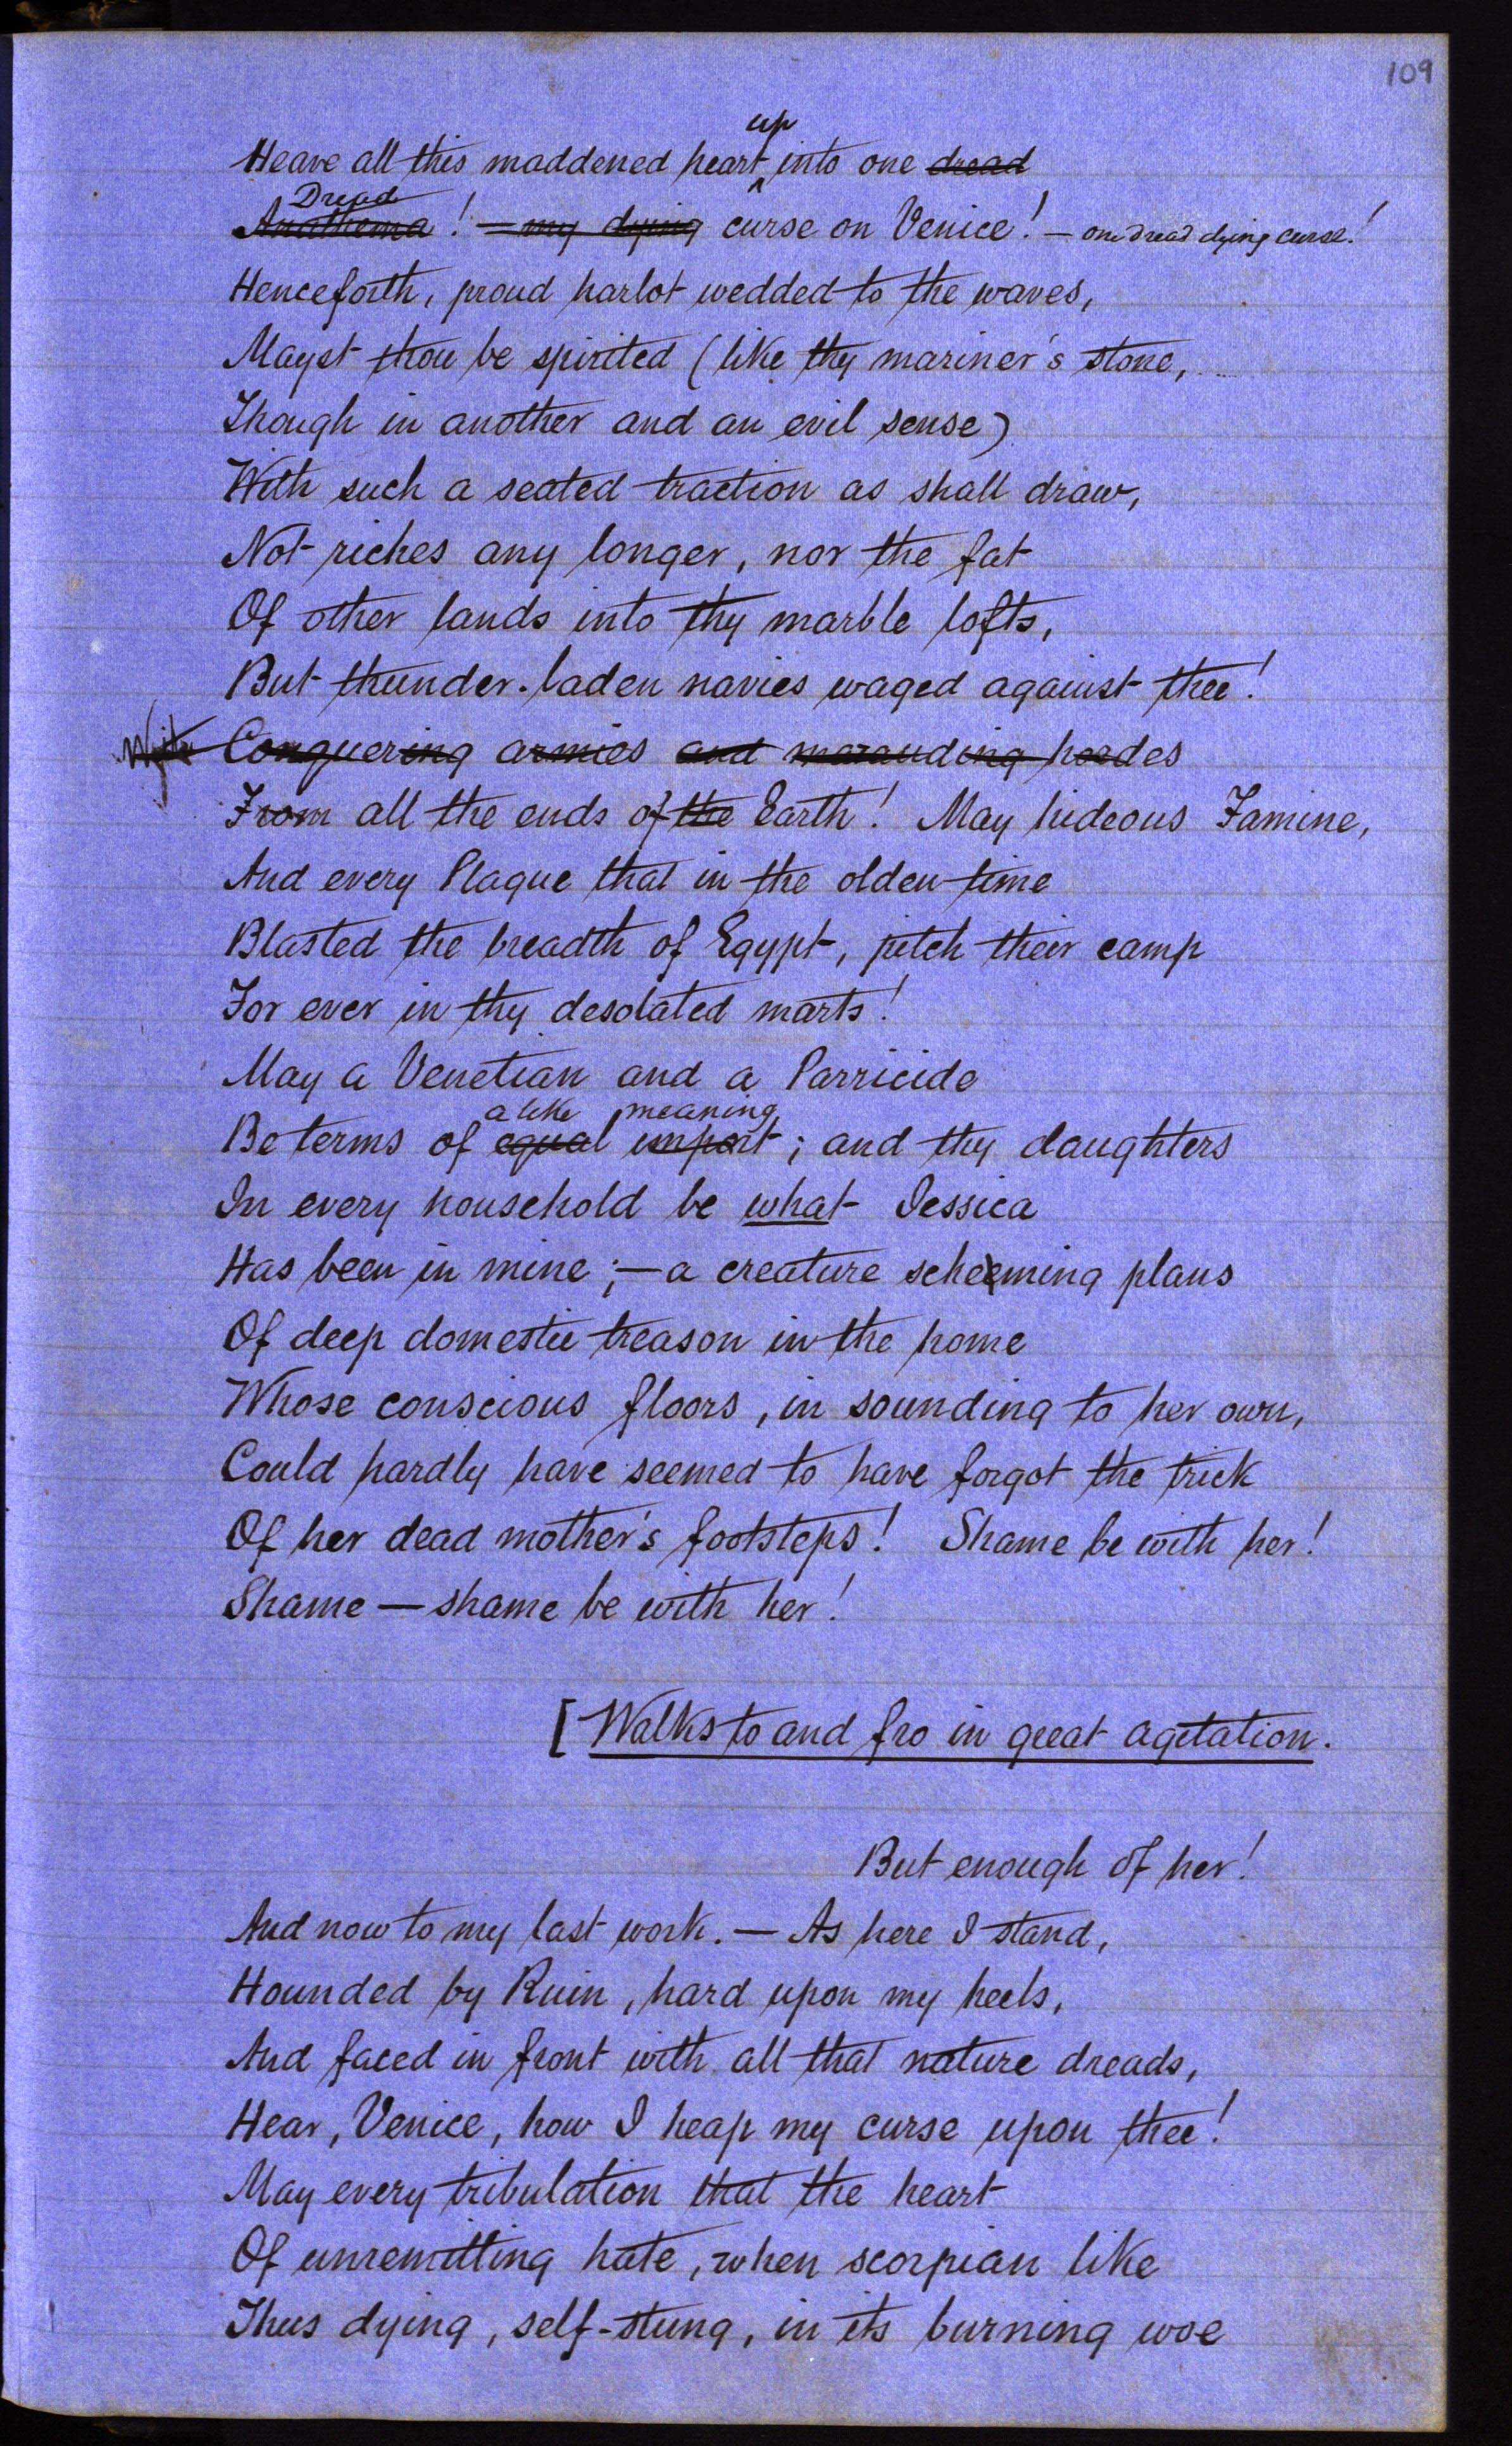 109
up
Heave all this maddened heart ‸ into one dread
Dread
Anathema! — my dying curse on Venice! — one dread dying curse!
Henceforth, proud harlot wedded to the waves,
Mayst thou be spirited (like thy mariner's stone,
Though in another and an evil sense)
With such a seated traction as shall draw,
Not riches any longer, nor the fat
Of other lands into thy marble lofts,
But thunder-laden navies waged against thee!
Conquering armies and marauding hordes
From all the ends of the Earth! May hideous Famine,
And every Plague that in the olden time
Blasted the breadth of Egypt, pitch their camp
For ever in thy desolated marts!
May a Venetian and a Parricide
alike meaning
Be terms of equal import; and thy daughters
In every household be what Jessica
Has been in mine;—a creature scheming plans
Of deep domestic treason in the home
Whose conscious floors, in sounding to her own,
Could hardly have seemed to have forgot the trick
Of her dead mother's footsteps! Shame be with her!
Shame — shame be with her!
[Walks to and fro in great agitation.
But enough of her!
And now to my last work. — As here I stand,
Hounded by Ruin, hard upon my heels,
And faced in front with all that nature dreads,
Hear, Venice, how I heap my curse upon thee!
May every tribulation that the heart
Of unremitting hate, when scorpian like
Thus dying, self-stung, in its burning woe